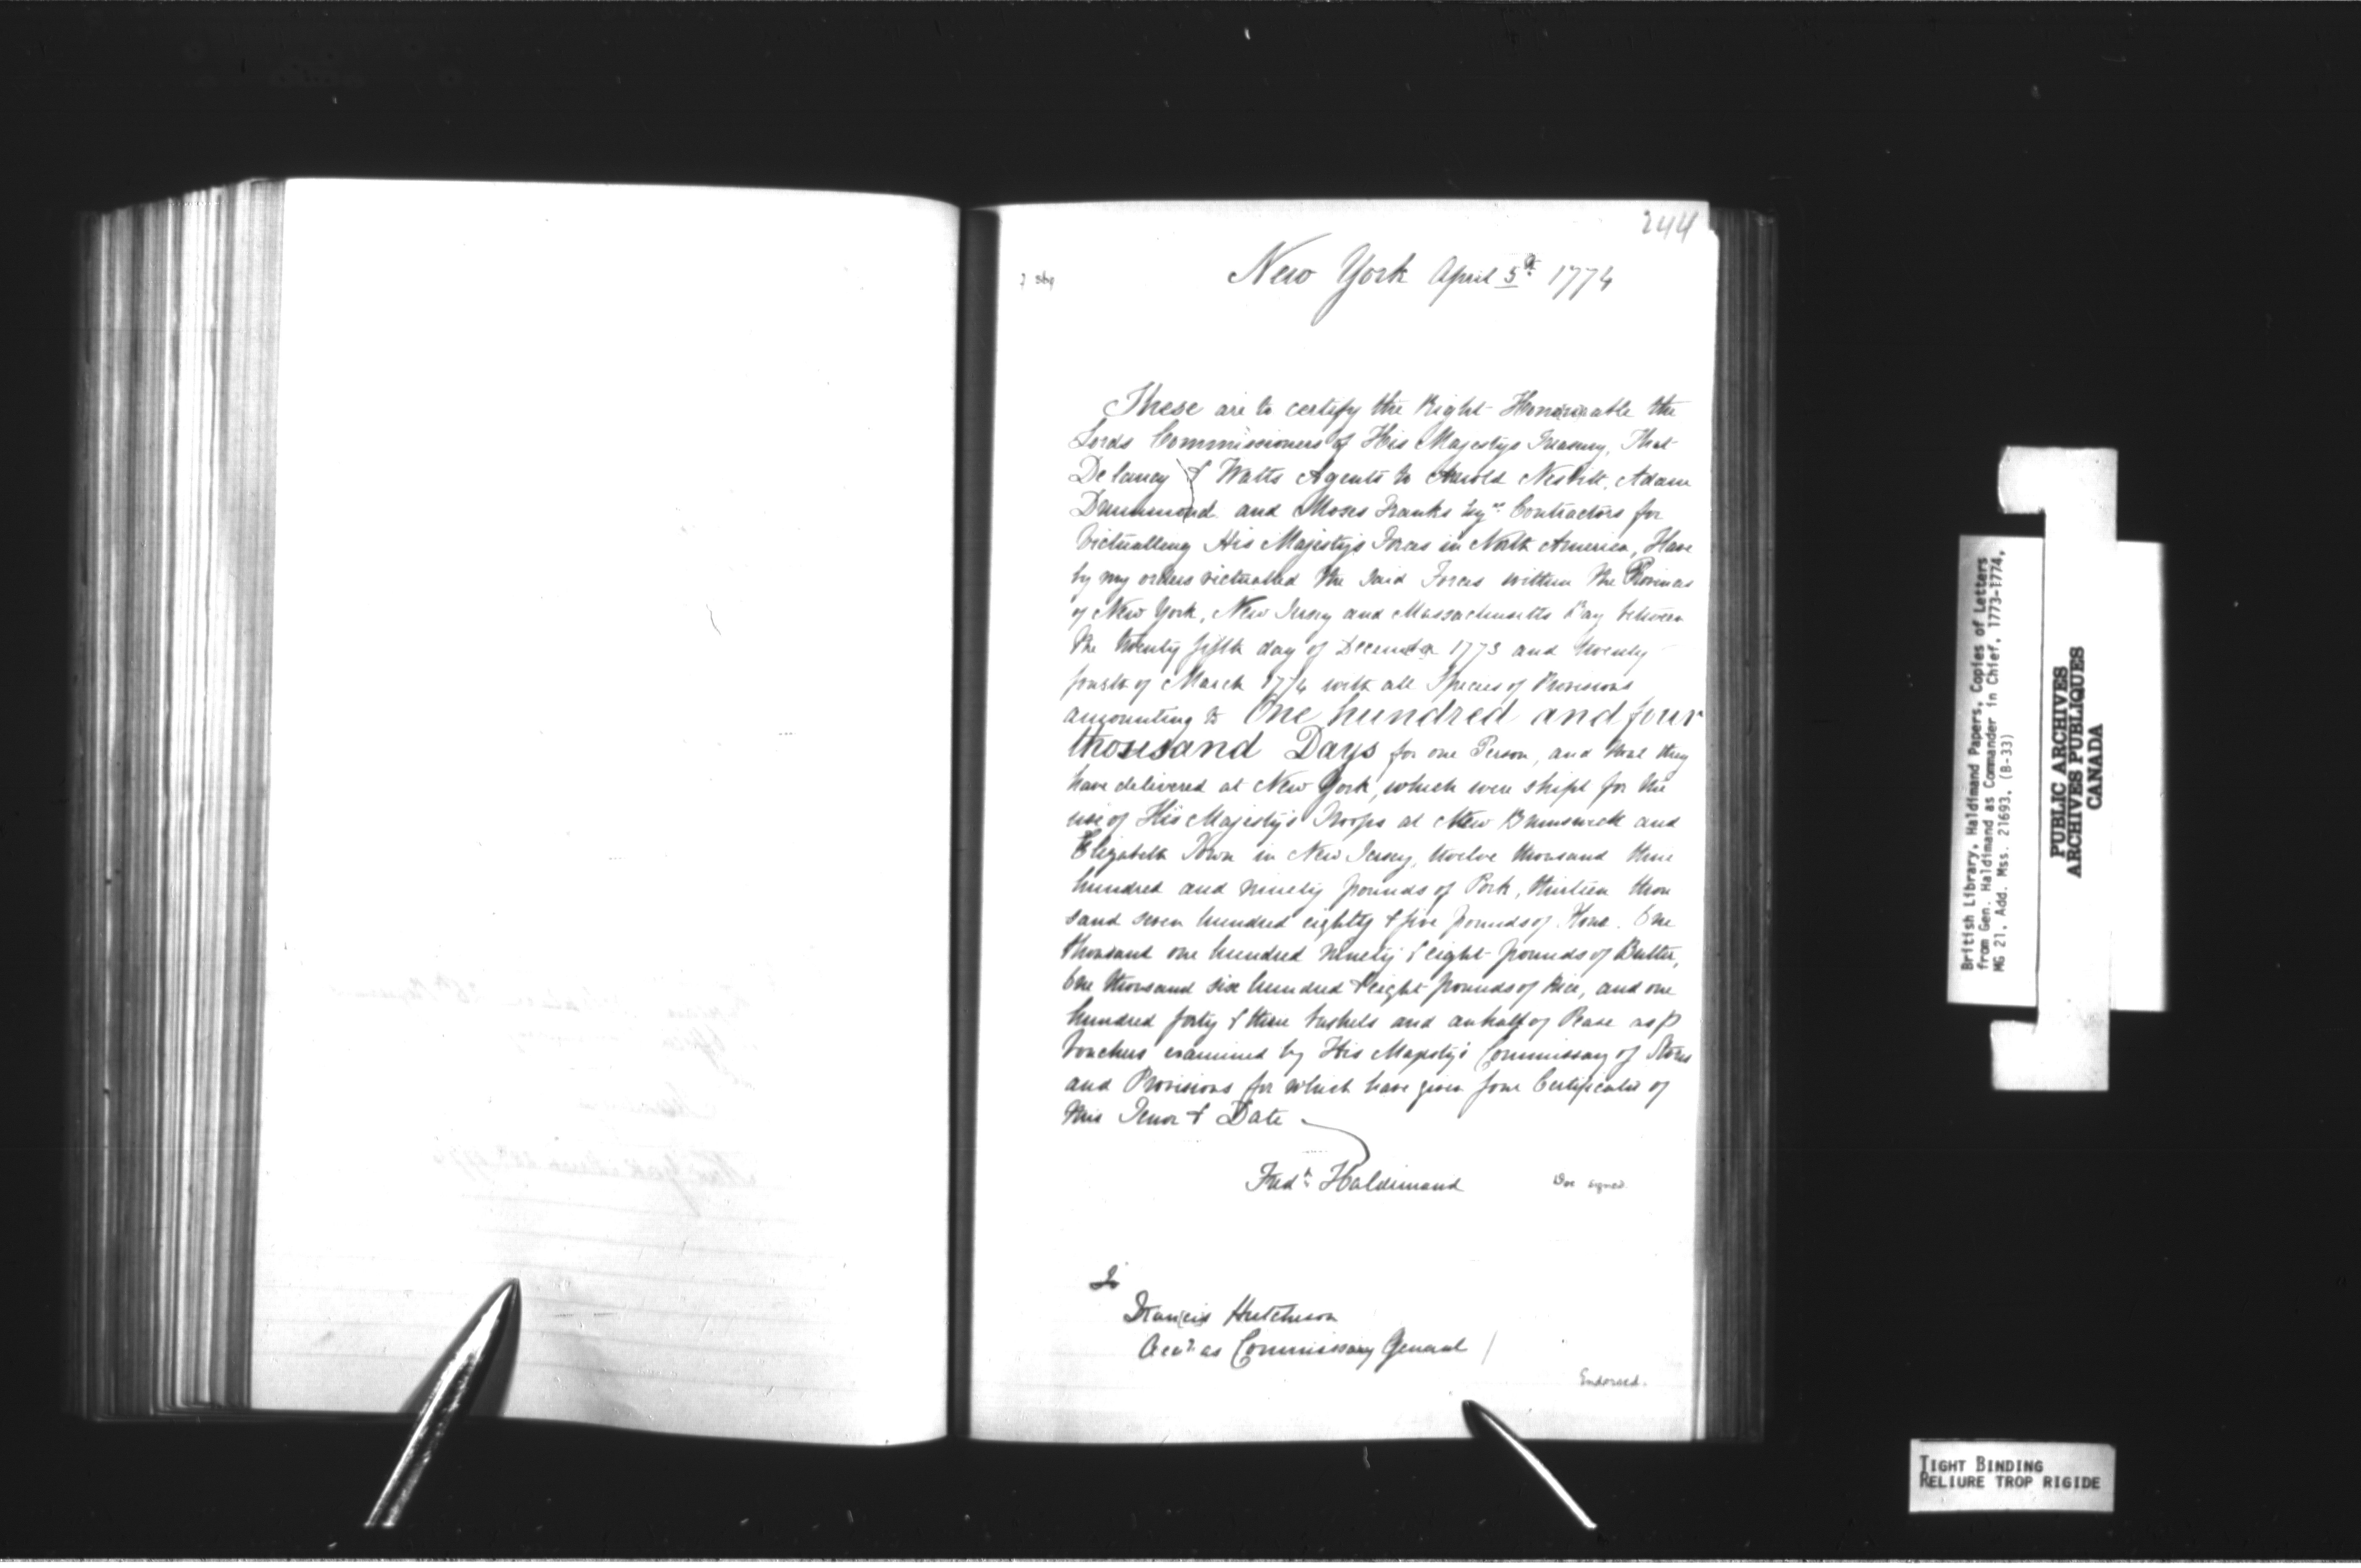 244
New York April 5th 1774
These are to certify the Right Honourable the
Lords Commissioners of His Majestys Treasury, That
Delancy & Watts Agents to Arnold Nesbitt, Adam
Drummond and Moses Franks Esqrs. Contractors for
Victualling His Majesty's Forces in North America, Have
by my orders victualled the said Forces within the Provinces
of New York, New Jersey and Massachusetts Bay between
the twenty fifth day of December 1773 and twenty
fourth of March 1774 with all Species of Provisions
amounting to One hundred and four
thousand Days for one Person, and that they
have delivered at New York, which were shipt for the
use of His Majesty's Troops at New Brunswick and
Elizabeth Town in New Jersey, twelve thousand three
hundred and ninety pounds of Pork, thirteen thou
sand seven hundred eighty & five pounds of Flour. One
thousand one hundred ninety & eight pounds of Butter,
One thousand six hundred & eight pounds of Rice, and one
hundred forty & three bushels and an half of Pease as p
Vouchers examined by His Majesty's Commissary of Stores
and Provisions for which have given four Certificates of
this Tenor & Date
Fredk. Haldimand
signed
To
Francis Hutcheson
as Commissary General
Endorsed.
British Library, Haldimand Papers, Copies of Letters
from Gen. Haldimand as Commander in Chief, 1773-1774,
MG 21, Add. Mss. 21693, (B-33)
PUBLIC ARCHIVES
ARCHIVES PUBLIQUES
CANADA
TIGHT BINDING
RELIURE TROP RIGIDE